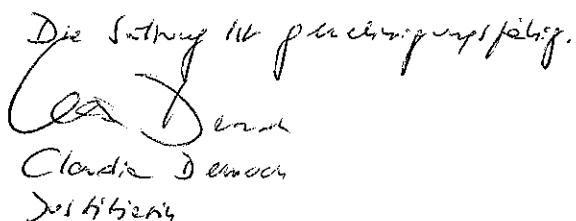 Die Satzung ist genehmigungsfähig.
Claudia Democh
Justitiarin